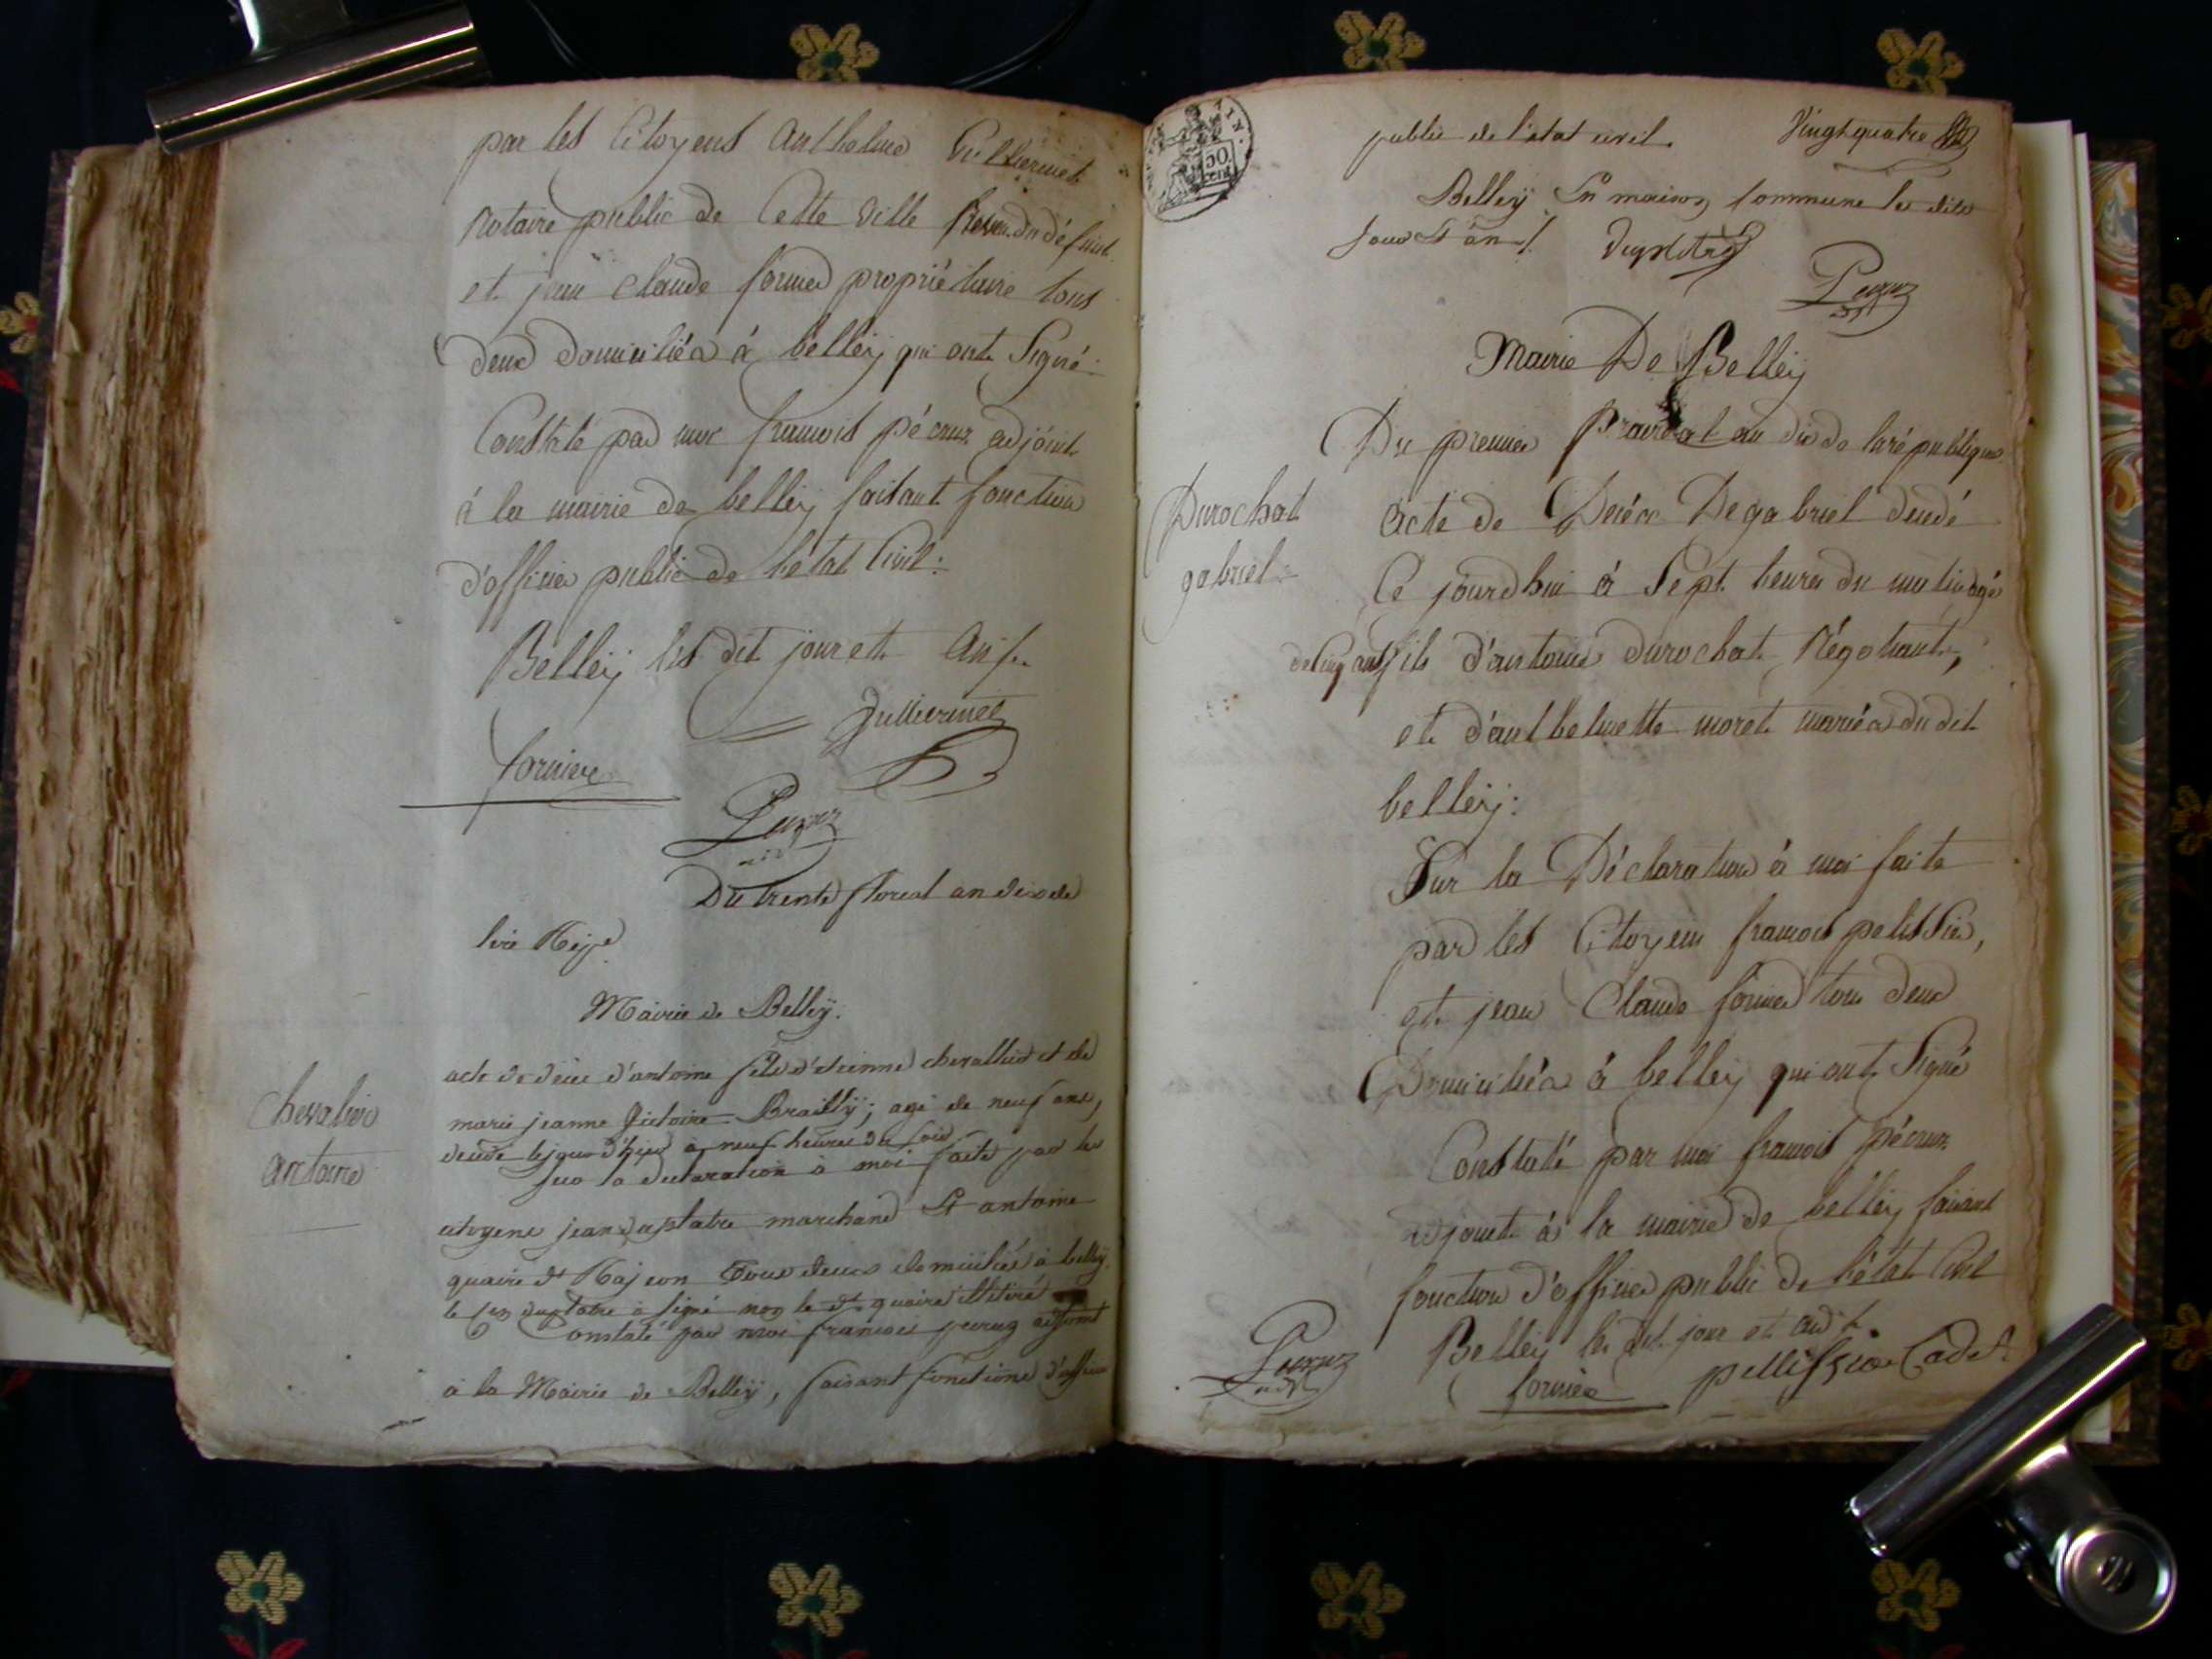 par les Citoyens Anthelme Guilhermet
Notaire public de Cette Ville neveu du défunt
et jean Claude fornier propriétaire tous
deux domiciliés à belleÿ qui ont Signé
Constaté par moi françois pécruz adjoint
à la mairie de belleÿ faisant fonction
d'officier public de l'état Civil:
Belleÿ les dit jour et An
Guilliermet
fornier
Pecruz
adj
Du trente floreal an dix de
l'ère Rép
Mairie de Belleÿ.
Chevalier
Antoine
acte de décès d'antoine fils d'étienne chevallier et de
marie jeanne Victoire Brailly; agé de neuf ans,
décédé le jour d'hier à neuf heures du soir
sur la declaration à moi faite par les
citoyens jean duplatre marchand Et antoine
quaire dt Najeon Tous deux domiciliés à belleÿ
le Cen duplatre à signé non le dt quaire illitéré
Constaté par moi françois pecruz adjoint
à la Mairie de Belleÿ, faisant fonctions d'officier
public de l'état civil.
Vingt quatre
Belleÿ En maison Commune les dits
jour Et an
Duplatre
Pecruz
adj
50
cent
Mairie De Belleÿ
Du premier Prairéal an dix de la république
Durochat
gabriel
Acte de Décès De gabriel décédé
Ce jourd'hui à Sept heures du matin agé
de cinq ans fils d'antoine durochat Négotiant,
et d'anthelmette moret mariés du dit
belleÿ:
Sur la Déclaration à moi faite
par les Citoyens françois pelissier,
et jean Claude fornier tous deux
Domiciliés à belleÿ qui ont Signé
Constaté par moi françois pécruz
adjoint à la mairie de belleÿ faisant
fonction d'officier public de l'état Civil
Belleÿ les dit jour et an
Pecruz
adj
fornier
pellissier Cadet